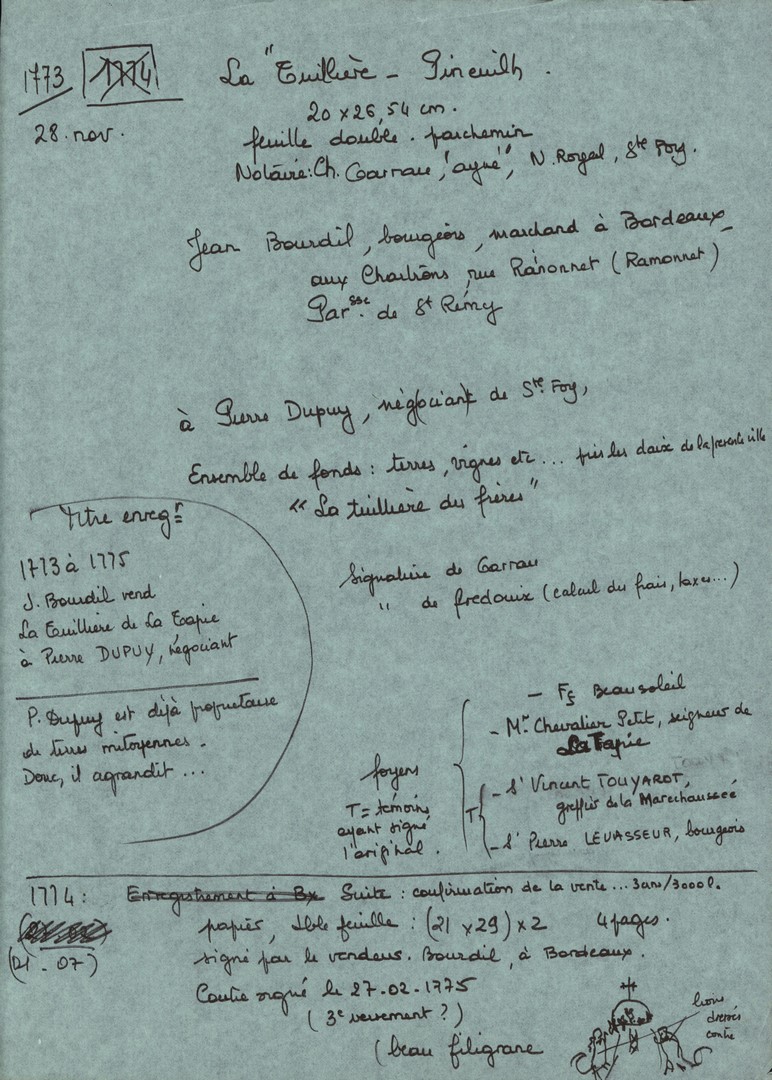 1773 1774
La "Tuillière - Pineuilh.
28. nov.
20 x 26,54 cm.
feuille double. parchemin
Notaire: Ch. Garrau, "ayné", N. Royal, Ste Foy.
Jean Bourdil, bourgeois, marchand à Bordeaux_
aux Chartrons, rue Ranonnet (Ramonnet)
Parsse. de St Rémy
à Pierre Dupuy, négociant de Ste Foy,
Ensemble de fonds: terres, vignes etc... près les de la presente ville
"La tuillière des frères"
Titre enregr
1773 à 1775
J. Bourdil vend
La Tuilliere de La Tapie
à Pierre DUPUY, négociant
P. Dupuy est déjà propriétaire
de terres mitoyennes.
Donc, il agrandit ...
Signature de Garrau
" de fredouix (calcul des frais, taxes...)
- Fs Beausoleil
- Mr. Chevalier Petit, seigneur de
La Tapie
foyers
T = témoins
ayant signé
l'original.
T
- Sr Vincent TOUYAROT,
greffier de la Marechaussée
- Sr Pierre LEVASSEUR, bourgeois
1774: Enregistrement à Bx Suite: confirmation de la vente... 3 ans/3000 l.
papier, dble feuille: (21 x 29) x 2 4 pages.
(21-07)
signé par le vendeur. Bourdil, à Bordeaux.
Contre signé le 27-02-1775
(3e versement ?)
(beau filigrane
lions
dressés
contre